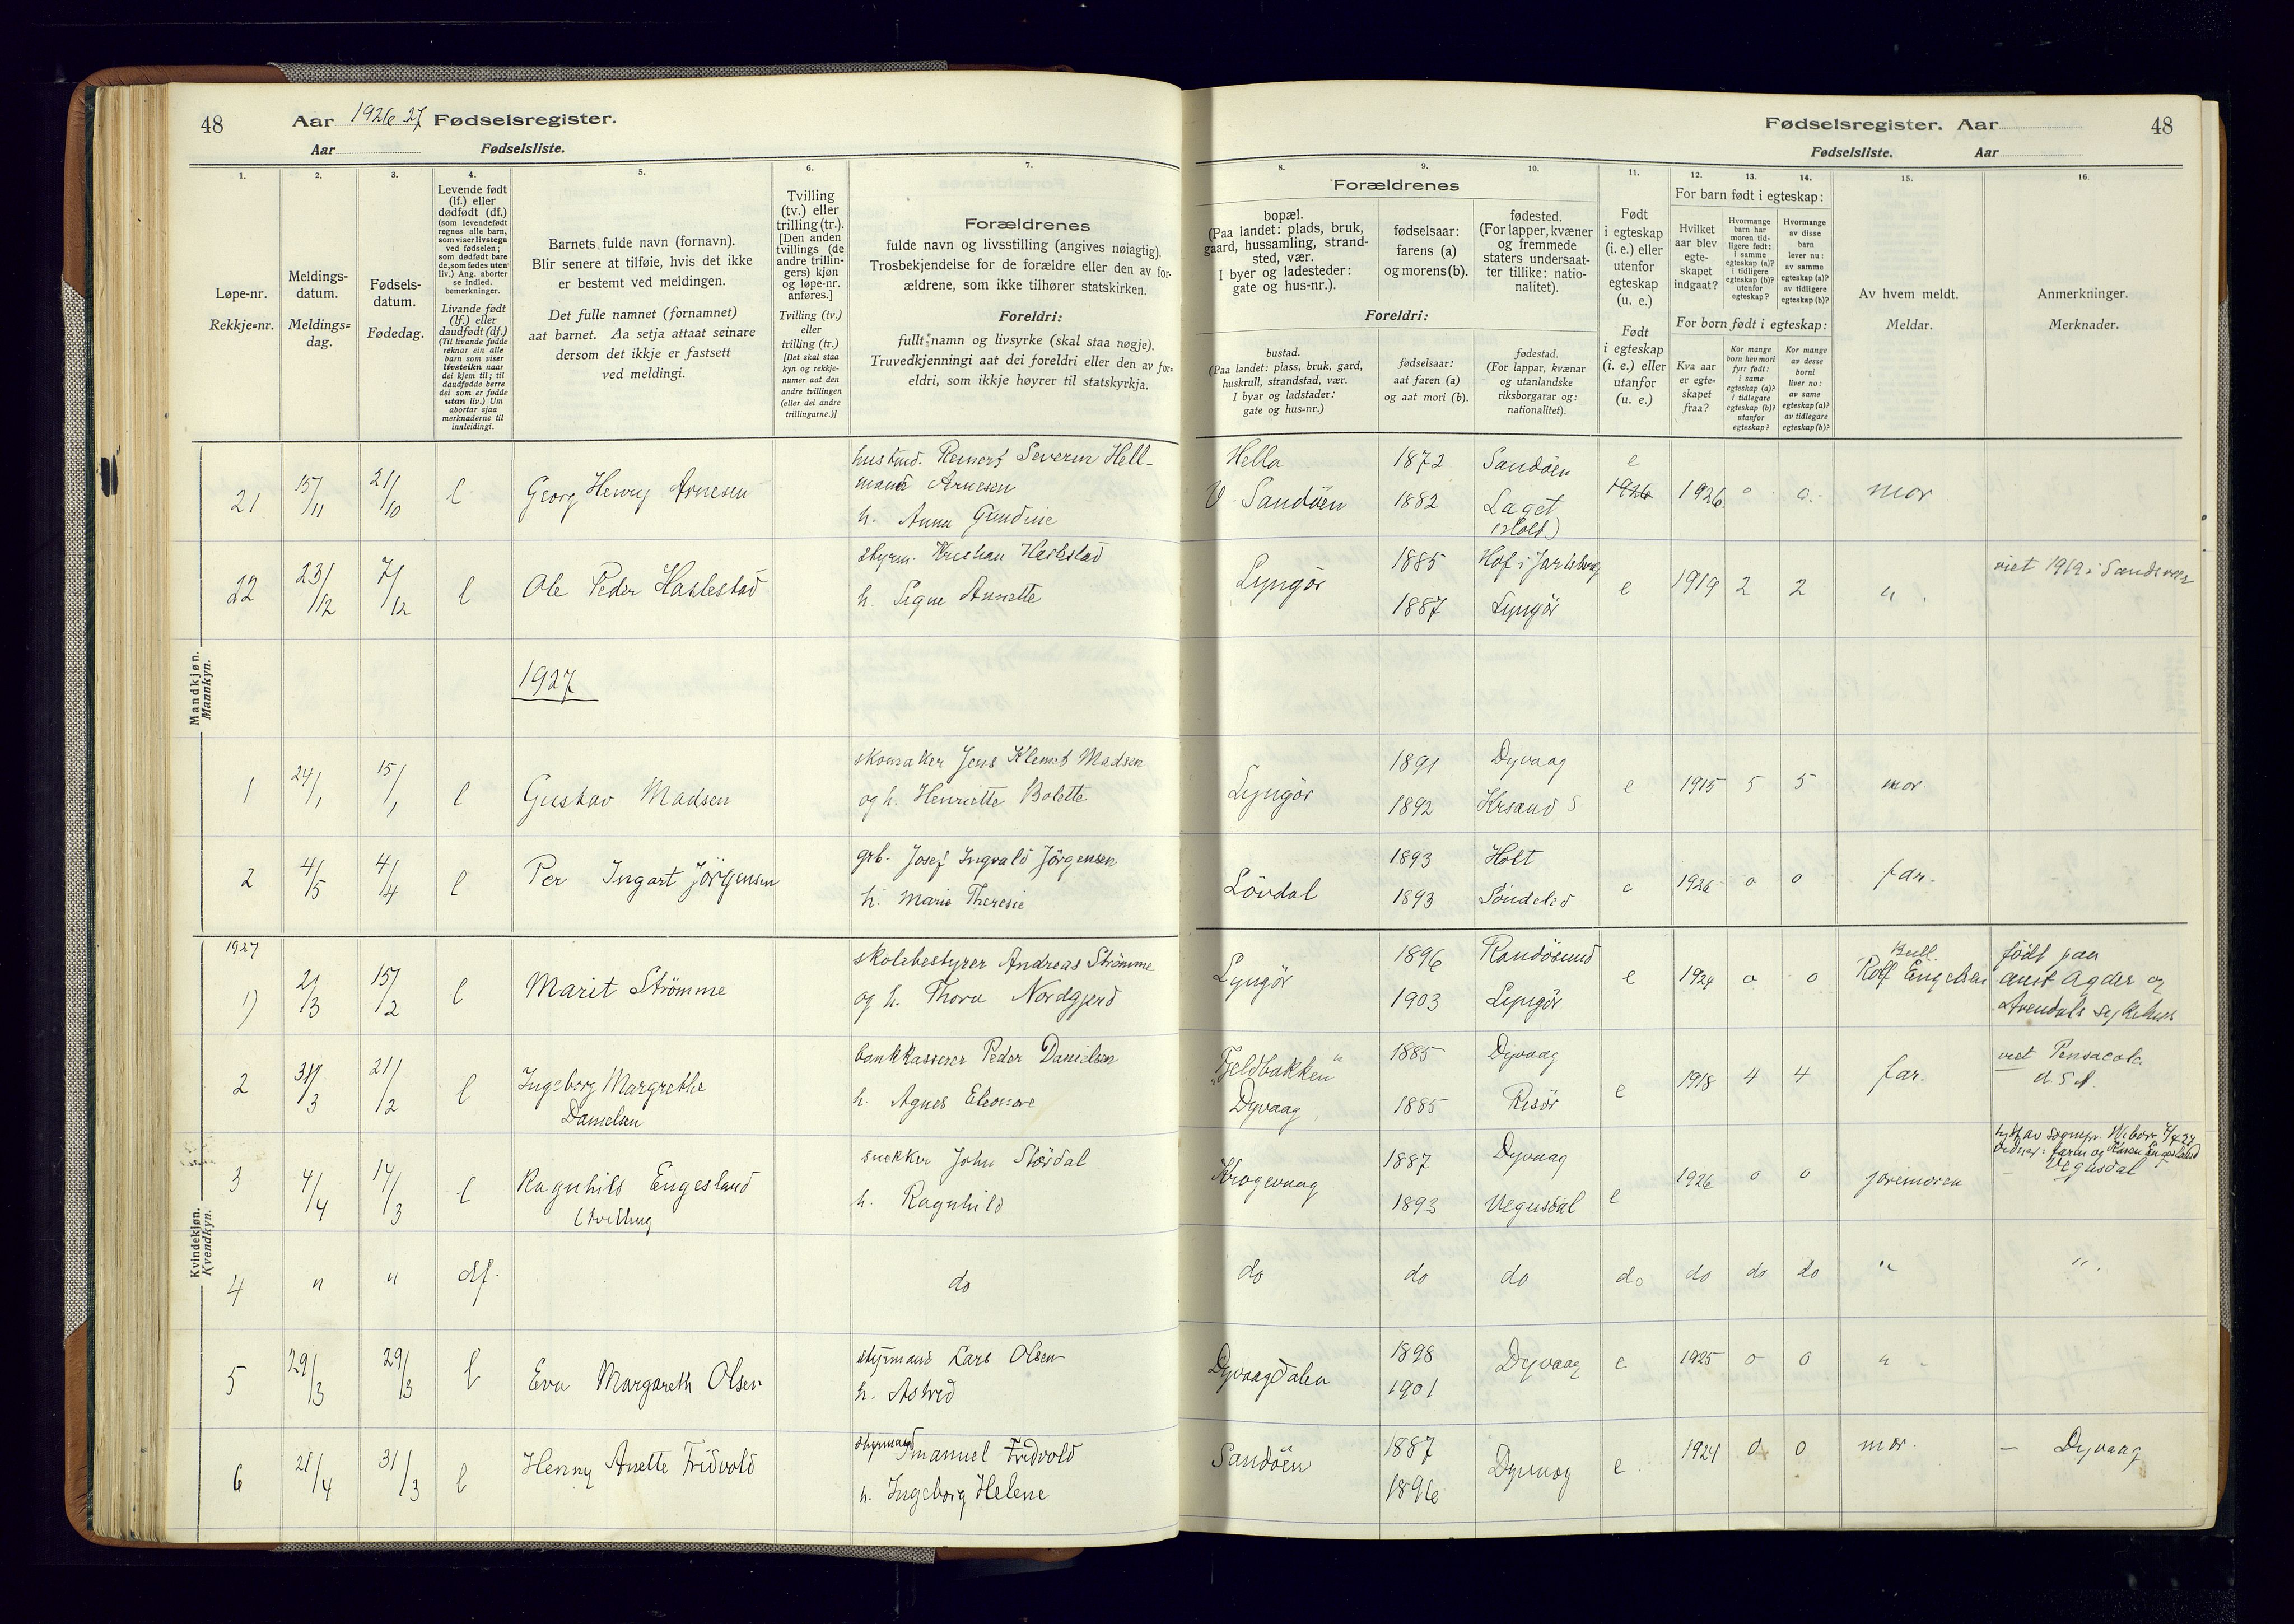 48
Aar 1926 27 Fødselsregister.
Aar Fødselsliste.
1. 2. 3. 4. 5. 6. 7.
Løpe-nr.
Rekkje=nr.
Meldings-
datum.
Meldings=
dag.
Fødsels-
datum.
Fødedag.
Levende født
(lf.) eller
dødfødt (df.)
(som levendefødt
regnes alle barn,
som viser livstegn
ved fødselen;
som dødfødt bare
de, som fødes uten
liv.) Ang. aborter
se indled.
bemerkninger.
Livande født
(lf.) eller
daudfødt (df.)
(Til livande fødde
reknar ein alle
barn som viser
livsteikn naar
dei kjem til; til
daudfødde berre
dei som er fødde
utan liv.) Um
abortar sjaa
merknaderne til
innleidingi.
Barnets fulde navn (fornavn).
Blir senere at tilføie, hvis det ikke
er bestemt ved meldingen.
Det fulle namnet (fornamnet)
aat barnet. Aa setja attaat seinare
dersom det ikkje er fastsett
ved meldingi.
Tvilling
(tv.) eller
trilling (tr.).
[Den anden
tvillings (de
andre trillin-
gers) kjøn
og løpe-nr.
anføres.]
Tvilling (tv.)
eller
trilling (tr.)
[Det skal staa
kyn og rekkje-
numer aat den
andre tvillingen
(eller dei andre
trillingarne.)]
Forældrenes
fulde navn og livsstilling (angives nøiagtig).
Trosbekjendelse for de forældre eller den av for-
ældrene, som ikke tilhører statskirken.
Foreldri:
fullt namn og livsyrke (skal staa nøgje).
Truvedkjenningi aat dei foreldri eller den av for-
eldri, som ikkje høyrer til statskyrkja.
Mandkjøn.
Mannkyn.
21 15/11 21/10 l Georg Henry Arnesen
Severin Hell-
Arnesen
h. Anna Gundine
22 23/12 7/12 l Ole Peder Haslestad
styrm. Kristian Haslestad
h. Signe Annette
1927
1 24/1 15/1 l Gustav Madsen
skomaker Jens Klemet Madsen
og h. Henriette Bolette
2 4/5 4/4 l Per Ingart Jörgensen
grb. Josef Ingvald Jörgensen
h. Marie Theresie
Kvindekjøn.
Kvendkyn.
1927
1) 2/3 15/2 l Marit Strömme
skolebestyrer Andreas Strömme
og h. Thora Nordgjerd
2 31/3 21/2 l Ingeborg Margrethe
Danielsen
bankkasserer Peder Danielsen
h. Agnes Eleonore
3 4/4 14/3 l Ragnhild Engesland
(tvilling
snekker John
h. Ragnhild
4 " " df. do
5 29/3 29/3 l Eva Margareth Olsen
styrmand Lars Olsen
h. Astrid
6 21/4 31/3 l Henny Anette Fridvold
styrmand Emanuel Fridvold
h. Ingeborg Helene
Fødselsregister. Aar 48
Fødselsliste. Aar
8. 9. 10. 11. 12. 13. 14. 15. 16.
Forældrenes
bopæl.
(Paa landet: plads, bruk,
gaard, hussamling, strand-
sted, vær.
I byer og ladesteder:
gate og hus-nr.).
fødselsaar:
farens (a)
og morens (b).
fødested.
(For lapper, kvæner
og fremmede
staters undersaat-
ter tillike: natio-
nalitet).
Foreldri:
bustad.
(Paa landet: plass, bruk, gard,
huskrull, strandstad, vær.
I byar og ladstader:
gate og hus=nr.)
fødselsaar:
aat faren (a)
og aat mori (b).
fødestad.
(For lappar, kvænar
og utanlandske
riksborgarar og:
nationalitet).
Født
i egteskap
(i. e.) eller
utenfor
egteskap
(u. e.)
Født
i egteskap
(i. e.) eller
utanfor
(u. e.)
For barn født i egteskap:
Hvilket
aar blev
egte-
skapet
indgaat?
Hvormange
barn har
moren tid-
ligere født:
i samme
egteskap (a)?
i tidligere
egteskap (b)?
utenfor
egteskap?
Hvormange
av disse
barn
lever nu:
av samme
egteskap (a)?
av tidligere
egteskap (b)?
For born født i egteskap:
Kva aar
er egte=
skapet
fraa?
Kor mange
born hev mori
fyrr født:
i same
egteskap (a)?
i tidlegare
egteskap (b)?
utanfor
egteskap?
Kor mange
av desse
borni
liver no:
av same
egteskap (a)?
av tidlegare
egteskap (b)?
Av hvem meldt.
Meldar.
Anmerkninger.
Merknader.
Hella 1872 Sandöen e
V. Sandöen 1882 Laget 1926 1926 0 0. mor
(Holt)
Lyngör 1885 Hof i Jarlsberg e 1919 2 2 " viet 1919 i
1887 Lyngör
Lyngör 1891 Dyvaag e 1915 5 5 mor
1892 Krsand S
Lövdal 1893 Holt e 1926 0 0 far.
1893 Söndeled
Lyngör 1896 Randösund e 1924 0 0 Rolf Engelsen
1903 Lyngör
født paa
aust Agder og
Arendals sykehus
"Fjeldbakken" 1885 Dyvaag e 1918 4 4 far.
Dyvaag 1885 Risör
viet Pensacola
U.S.A.
Krogevaag 1887 Dyvaag e 1926 0 0 joremoren
1893 Vegusdal
Vegusdal
do do do do do do do " ".
Dyvaagdalen 1898 Dyvaag e 1925 0 0 "
1901
Sandöen 1887 Dyvaag e. 1921 0 0 mor. — Dyvaag
1896